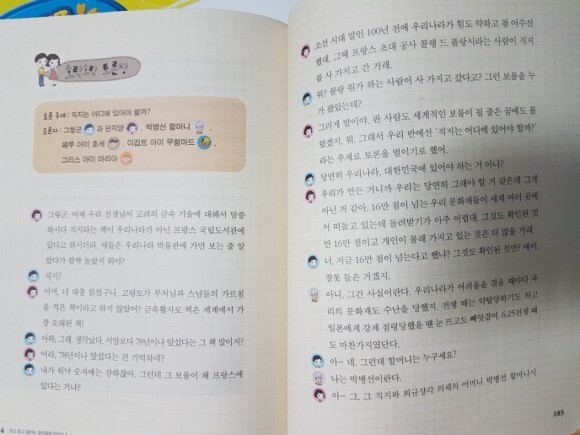 토론 주제 : 직지는 어디에 있어야 할까?
토론자 : 그렇군 과 뭔지양 , 박병선 할머니 ,
페루 아이 호세 , 이집트 아이 무함마드
그리스 아이 마리아
그렇군, 어제 우리 선생님이 고려의 금속 기술에 대해서 말씀
하시다 직지라는 책이 우리나라가 아닌 프랑스 국립도서관에
있다고 하시더라. 애들은 우리나라 박물관에 가면 보는 줄 알
았다가 깜짝 놀랐지 뭐야?
직지?
어머, 너 대충 읽었구나. 고령토가 부처님과 스님들의 가르침
을 적은 책이라고 하지 않았어? 금속활자로 찍은 세계에서 가
장 오래된 책!
아하, 그래. 생각났다. 서양보다 78년이나 앞섰다는 그 책 말이지?
어라, 78년이나 앞섰다는 건 기억하네?
내가 워낙 숫자에는 강하잖아. 그런데 그 보물이 왜 프랑스에
있다는 거냐?
조선 시대 말인 100년 전에 우리나라가 힘도 약하고 참 어수선
했대. 그때 프랑스 초대 공사 콜랭 드 플랑시라는 사람이 직지
를 사 가지고 간 거래.
뭐? 꼴랑 뭔가 하는 사람이 사 가지고 갔다고? 그런 보물을 누
가 팔았는데?
그러게 말이야. 판 사람도 세계적인 보물이 될 줄은 꿈에도 몰
랐겠지, 뭐. 그래서 우리 반에선 '직지는 어디에 있어야 할까?'
라는 주제로 토론을 벌이기로 했어.
당연히 우리나라, 대한민국에 있어야 하는 거 아냐?
우리가 만든 거니까 우리는 당연히 그래야 할 거 같은데 그게
아닌 거 같아. 16만 점이 넘는 우리 문화재들이 세계 여러 곳에
서 떠돌고 있는데 돌려받기가 아주 어렵대. 그것도 확인된 것
만 16만 점이고 개인이 몰래 가지고 있는 것은 더 많을 거래.
너, 지금 16만 점이 넘는다고 했냐? 그것도 확인된 것만? 에이,
잘못 들은 거겠지.
아니, 그건 사실이란다. 우리나라가 어려움을 겪을 때마다 우
리의 문화재도 수난을 당했지. 전쟁 때는 약탈당하기도 하고
일본에게 강제 점령당했을 땐 눈 뜨고도 빼앗겼어. 6.25전쟁 때
도 마찬가지였단다.
아~ 네. 그런데 할머니는 누구세요?
나는 박병선이란다.
아~ 그, 그 직지와 외규장각 의궤의 어머니 박병선 할머니시
185